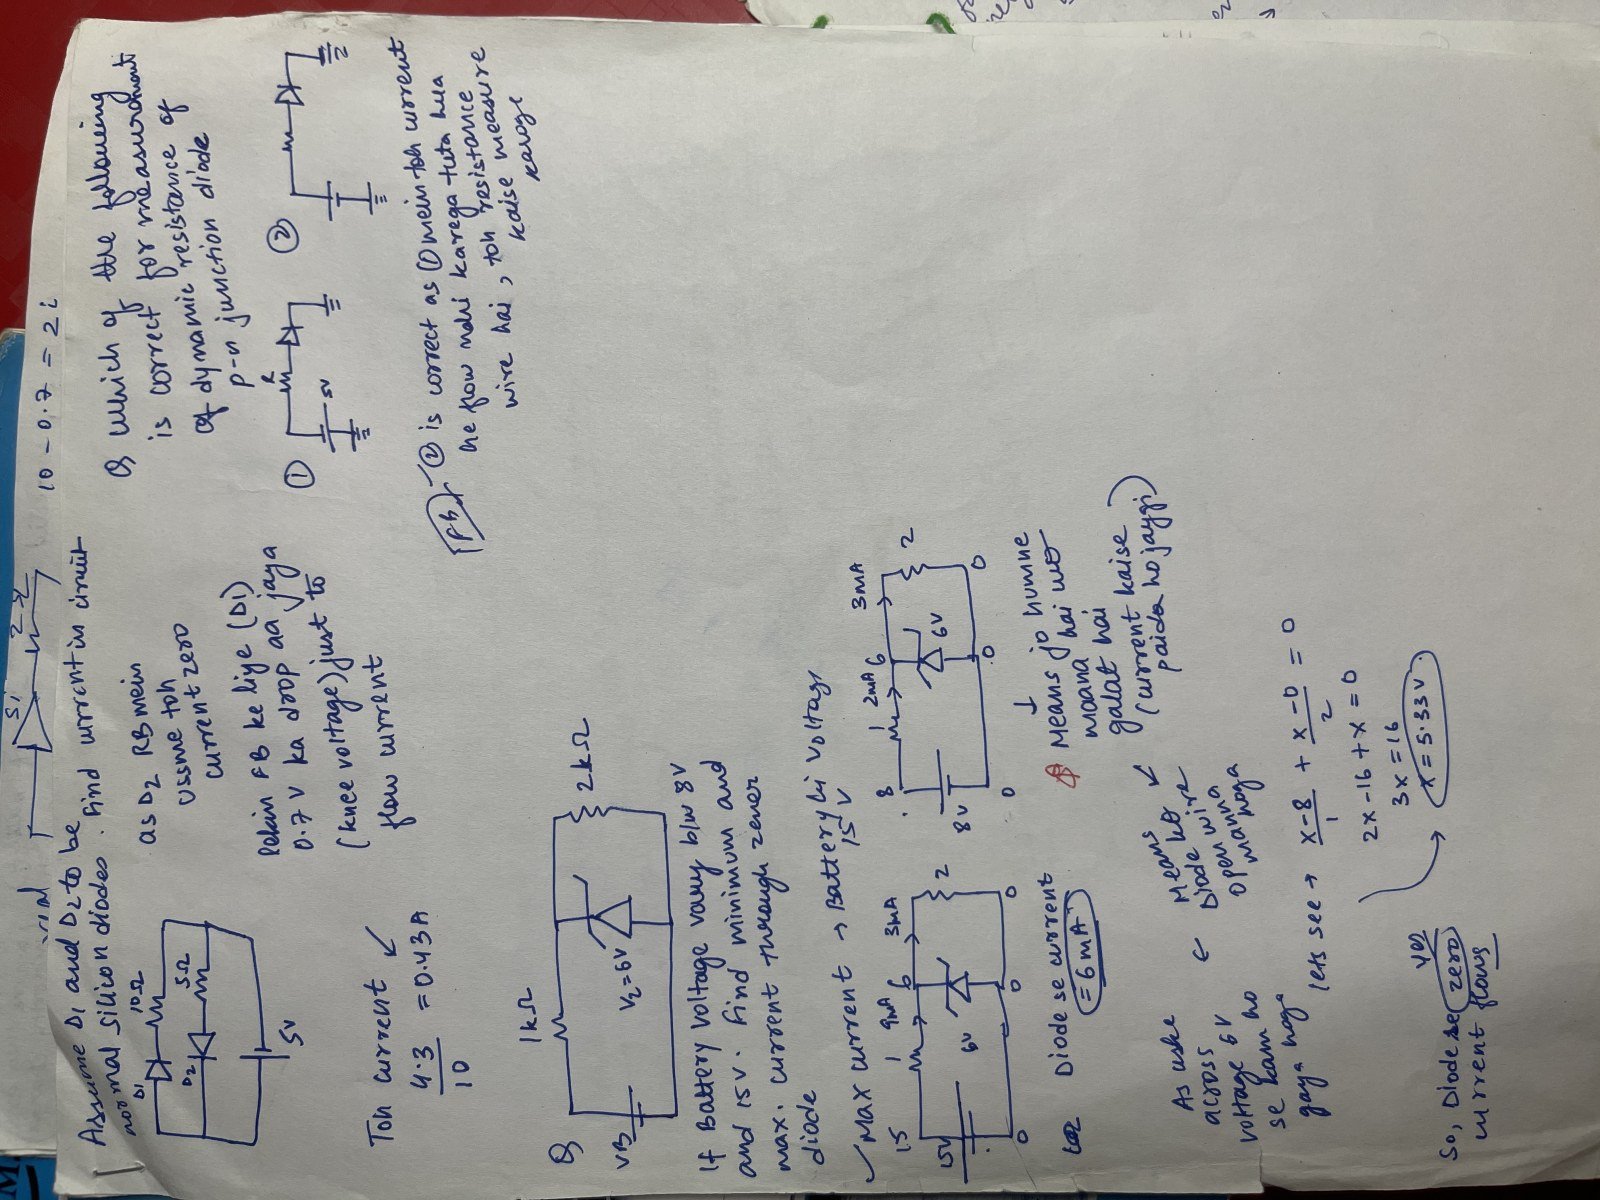 10 - 0.7 = 2i
Si
2Ω
Assume D1 and D2 to be
normal silicon diodes. Find current in circuit
D1
10Ω
D2
5Ω
5V
as D2 RB mein
ussme toh
current zero
lekin FB ke liye (D1)
0.7 V ka drop aa jaya
(knee voltage) just to
flow current
Toh current
4.3
= 0.43 A
10
Q which of the following
is correct for measurement
of dynamic resistance of
p-n junction diode
①
R
5V
②
FB
② is correct as ① mein toh current
he flow nahi karega tuta hua
wire hai, toh resistance
kaise measure
karoge
Q
1kΩ
VB
Vz=6V
2kΩ
If Battery voltage vary b/w 8V
and 15V. Find minimum and
max. current through zener
diode
Max current → Battery ki voltage
15 V
15
1
9mA
6
3mA
15V
6V
2
0
0
0
Diode se current
= 6mA
8
1
2mA
6
3mA
8V
6V
2
0
0
0
Means jo humne
maana hai wo
galat hai
(current kaise
paida ho jaygi)
As uske
across
voltage 6V
se kam ho
gaya hoga
←
Means
Diode ko
open wire
manna
hoga
lets see →
x-8 + x-0 = 0
1 2
2x-16+x=0
3x = 16
x = 5.33V
So, Diode se zero
current flows